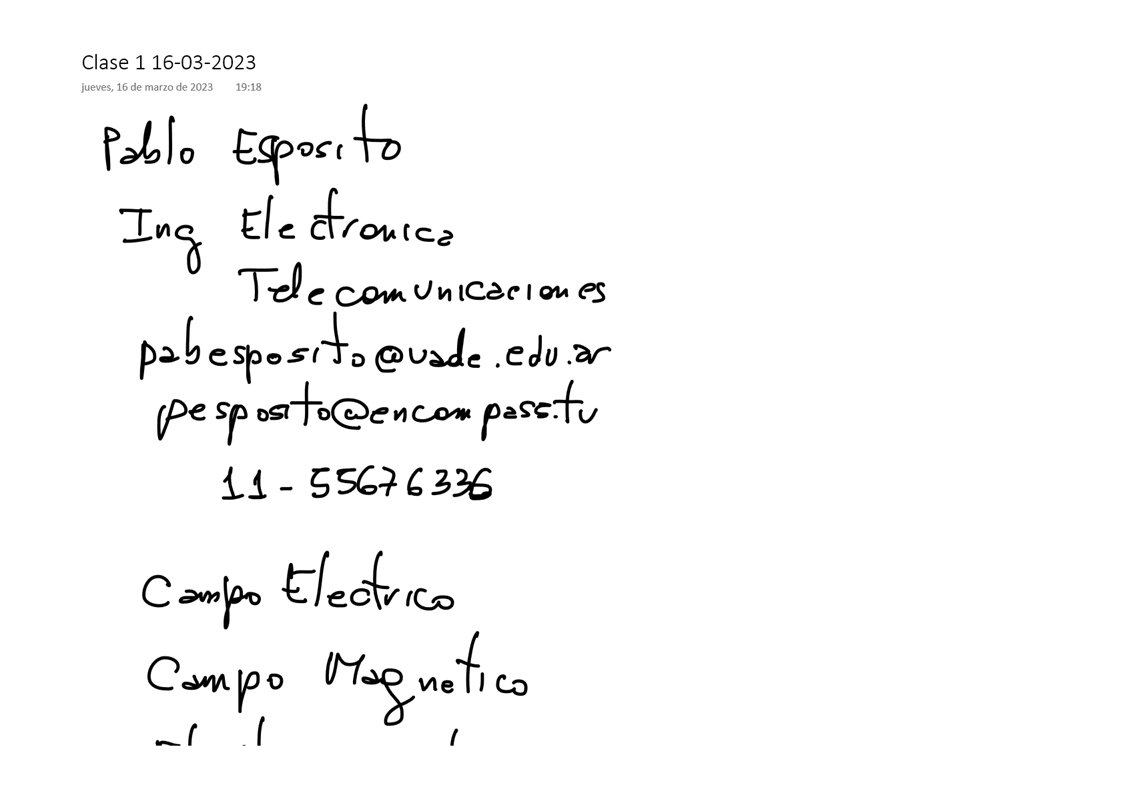 Clase 1 16-03-2023
jueves, 16 de marzo de 2023 19:18
Pablo Esposito
Ing Electronica
Telecomunicaciones
pabesposito@uade.edu.ar
pesposito@encompass.tv
11-55676336
Campo Electrico
Campo Magnetico